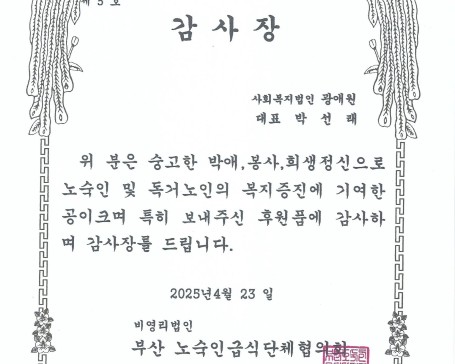 제 5 호
감 사 장
사회복지법인 광애원
대표 박 선 래
위 분은 숭고한 박애,봉사,희생정신으로
노숙인 및 독거노인의 복지증진에 기여한
공이크며 특히 보내주신 후원품에 감사하
며 감사장를 드립니다.
2025년4월 23 일
비영리법인
부산 노숙인급식단체협의회